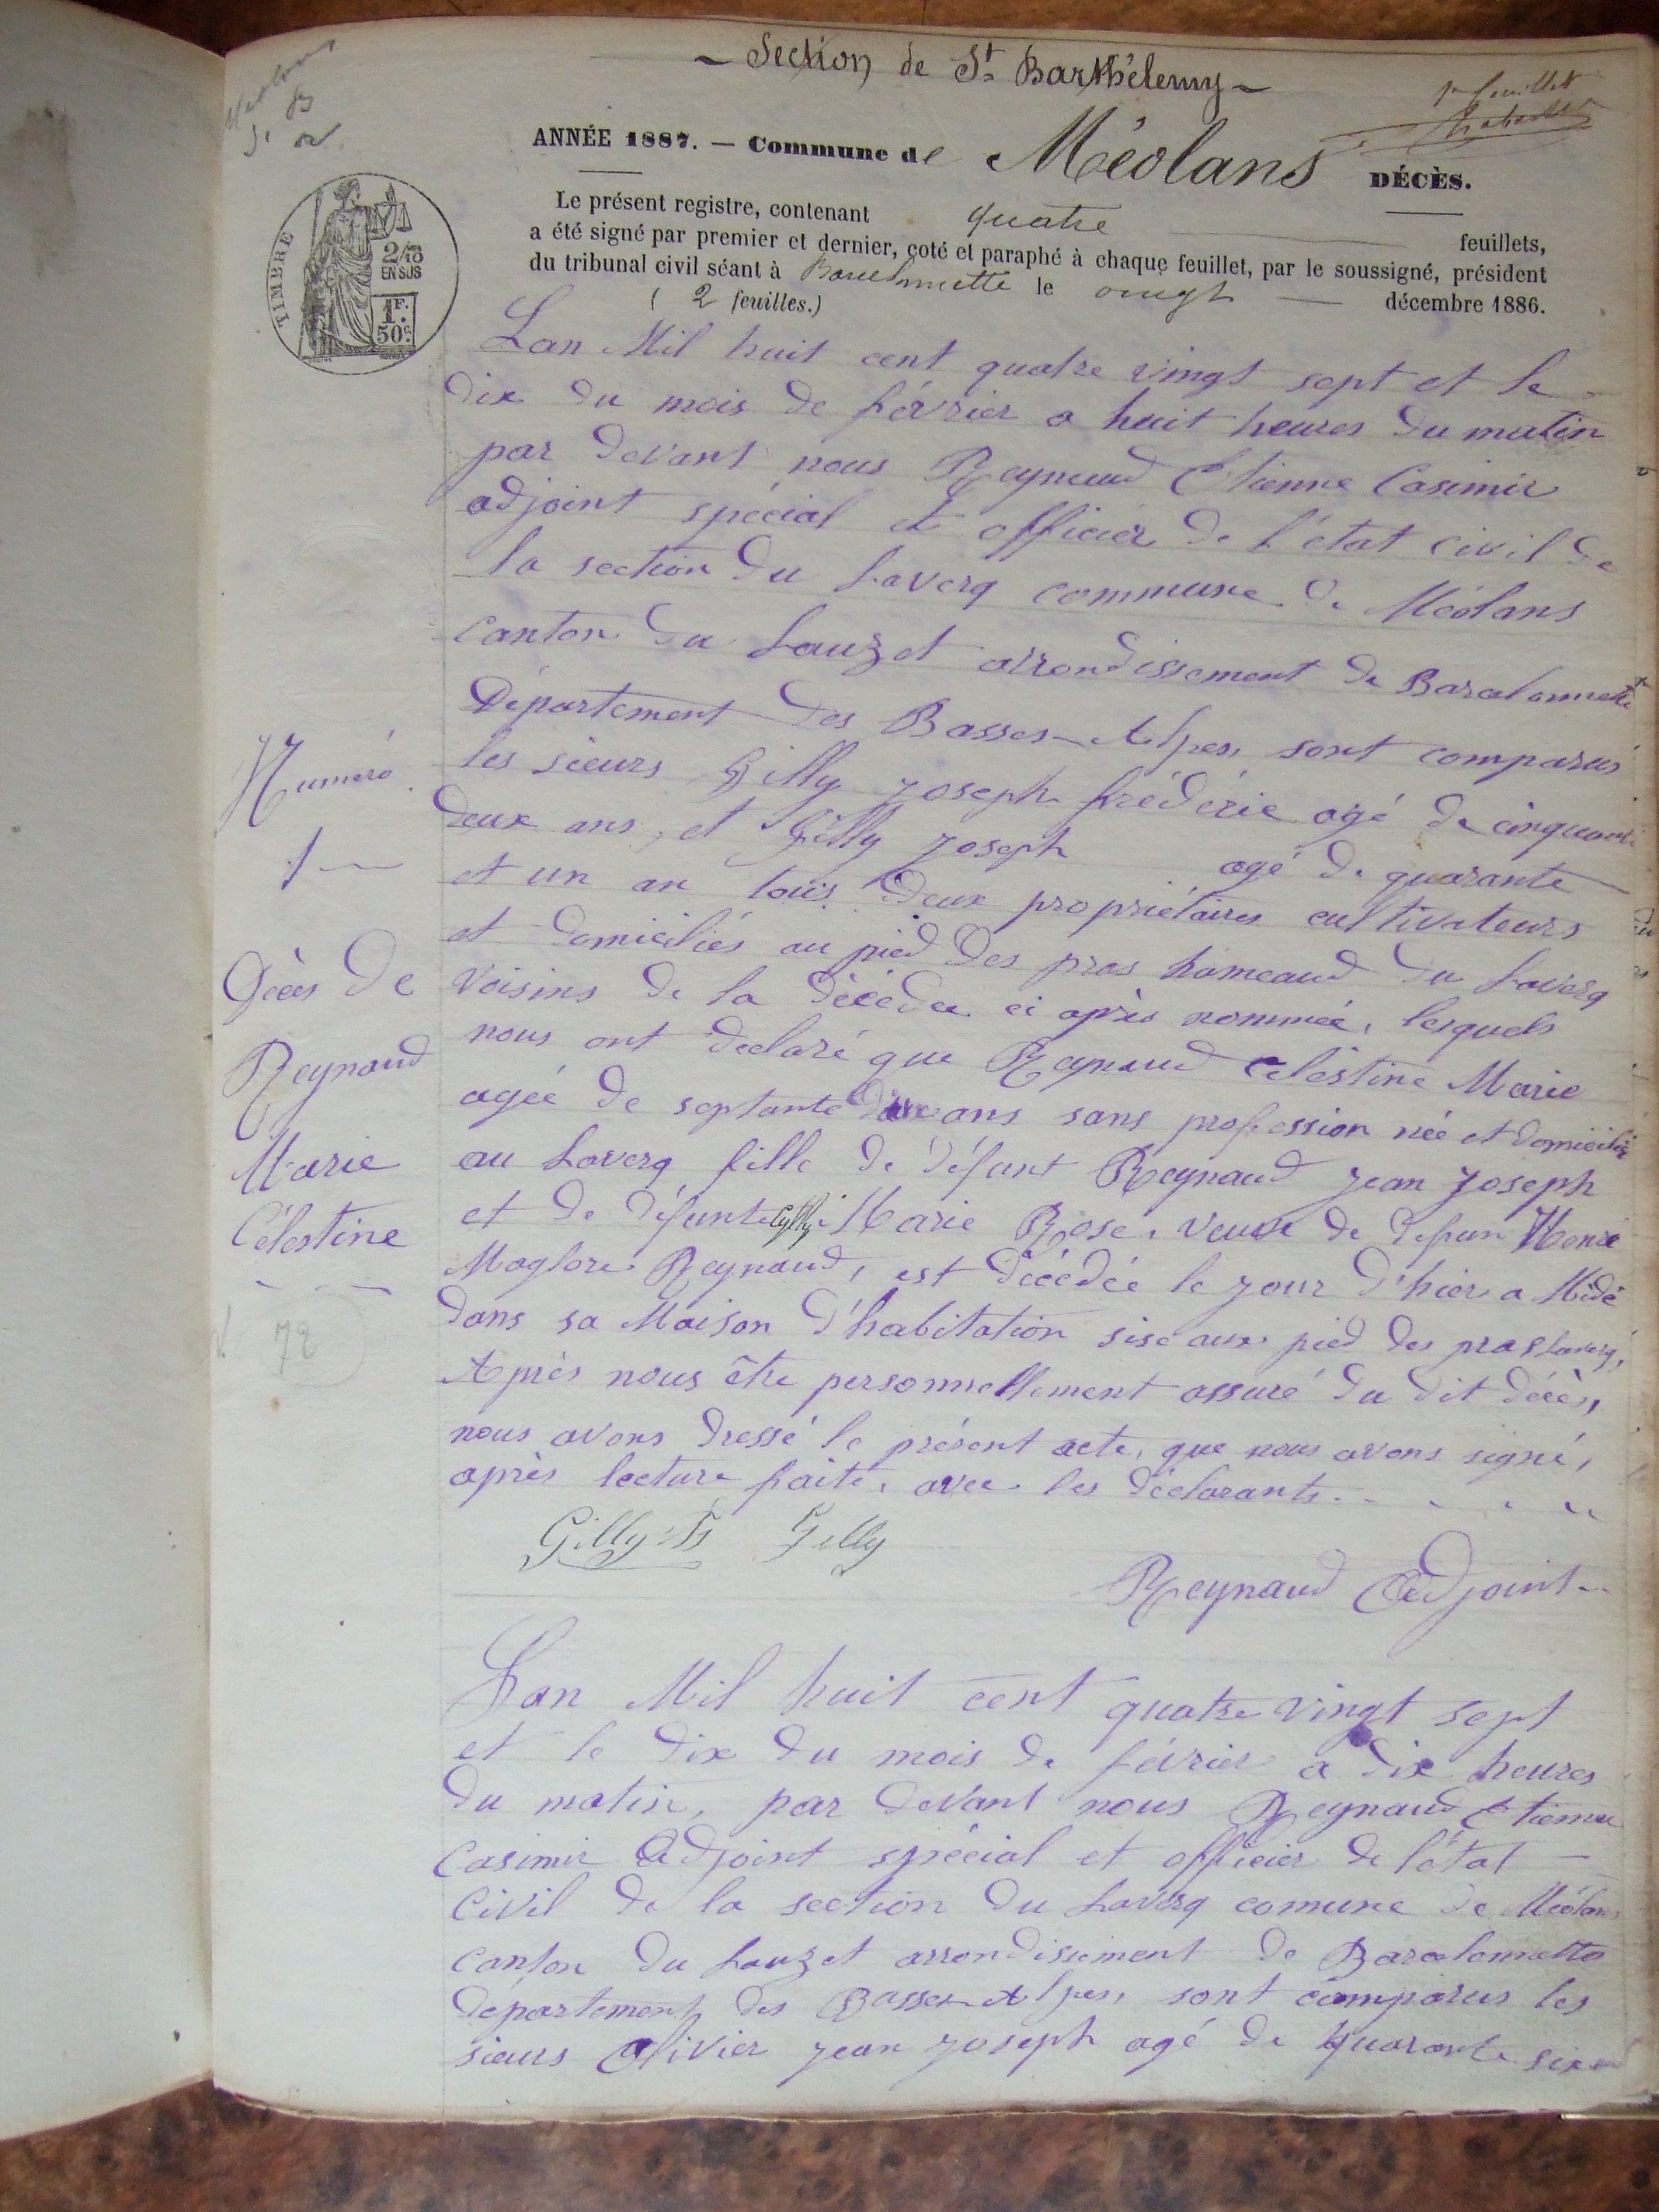 - Section de St Barthélemy -
1er feuillet
ANNÉE 1887. — Commune de Méolans DÉCÈS.
Le présent registre, contenant quatre feuillets,
a été signé par premier et dernier, coté et paraphé à chaque feuillet, par le soussigné, président
du tribunal civil séant à Barcelonnette le vingt décembre 1886.
( 2 feuilles.)
TIMBRE
2/10
EN SUS
1F.
50c.
Lan Mil huit cent quatre vingt sept et le
dix du mois de février a huit heures du matin
par devant nous Reynaud Etienne Casimir
adjoint spécial et officier de l'état civil de
la section du Laverq commune de Méolans
canton du Lauzet arrondissement de Barcelonnette
Département des Basses-Alpes, sont comparus
les sieurs Gilly Joseph frédéric agé de cinquante
deux ans, et Gilly Joseph agé de quarante
et un an tous deux propriétaires cultivateurs
et domiciliés au pied des pras hameaud du Laverq
voisins de la décédée ci après nommée, lesquels
nous ont declaré que Reynaud Celéstine Marie
agée de septante deux ans sans profession née et domiciliée
au Laverq fille de défunt Reynaud Jean Joseph
et de défunte Gilly Marie Rose, veuve de defun Henri
Magloire Reynaud, est décédée le jour d'hier a Midi
dans sa Maison d'habitation sise aux pied des pras Laverq,
Après nous être personnellement assuré du dit décès,
nous avons dressé le présent acte, que nous avons signé,
après lecture faite, avec les déclarants.
Gilly Gilly
Reynaud Adjoint
Numéro
1
Décès de
Reynaud
Marie
Célestine
72
Lan Mil huit cent quatre vingt sept
et le dix du mois de février a dix heures
du matin, par devant nous Reynaud Etienne
Casimir Adjoint spécial et officier de l'état
Civil de la section du Laverq comune de Méolans
canton du Lauzet arrondissement de Barcelonnette
departement des Basses-Alpes, sont comparus les
sieurs Olivier Jean Joseph agé de quarante six